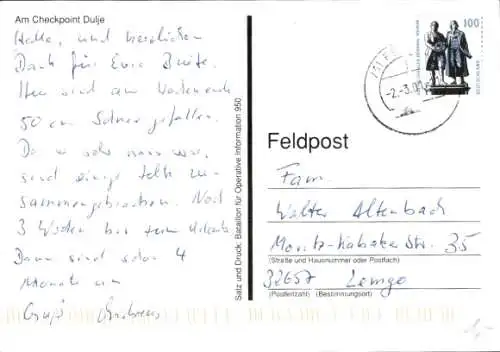 Am Checkpoint Dulje
Hallo, und herzlichen
Dank für Eure Briefe.
Hier sind am Wochenende
50 cm Schnee gefallen.
Da er sehr nass war,
sind einige Zelte zu-
sammengebrochen. Noch
3 Wochen bis zum Urlaub.
Dann sind schon 4
Monate um
Gruß Andreas
Satz und Druck: Bataillon für Operative Information 950
100
DEUTSCHLAND
Feldpost
Fam.
Walter Altenbach
Str. 35
(Straße und Hausnummer oder Postfach)
32657 Lemgo
(Postleitzahl) (Bestimmungsort)